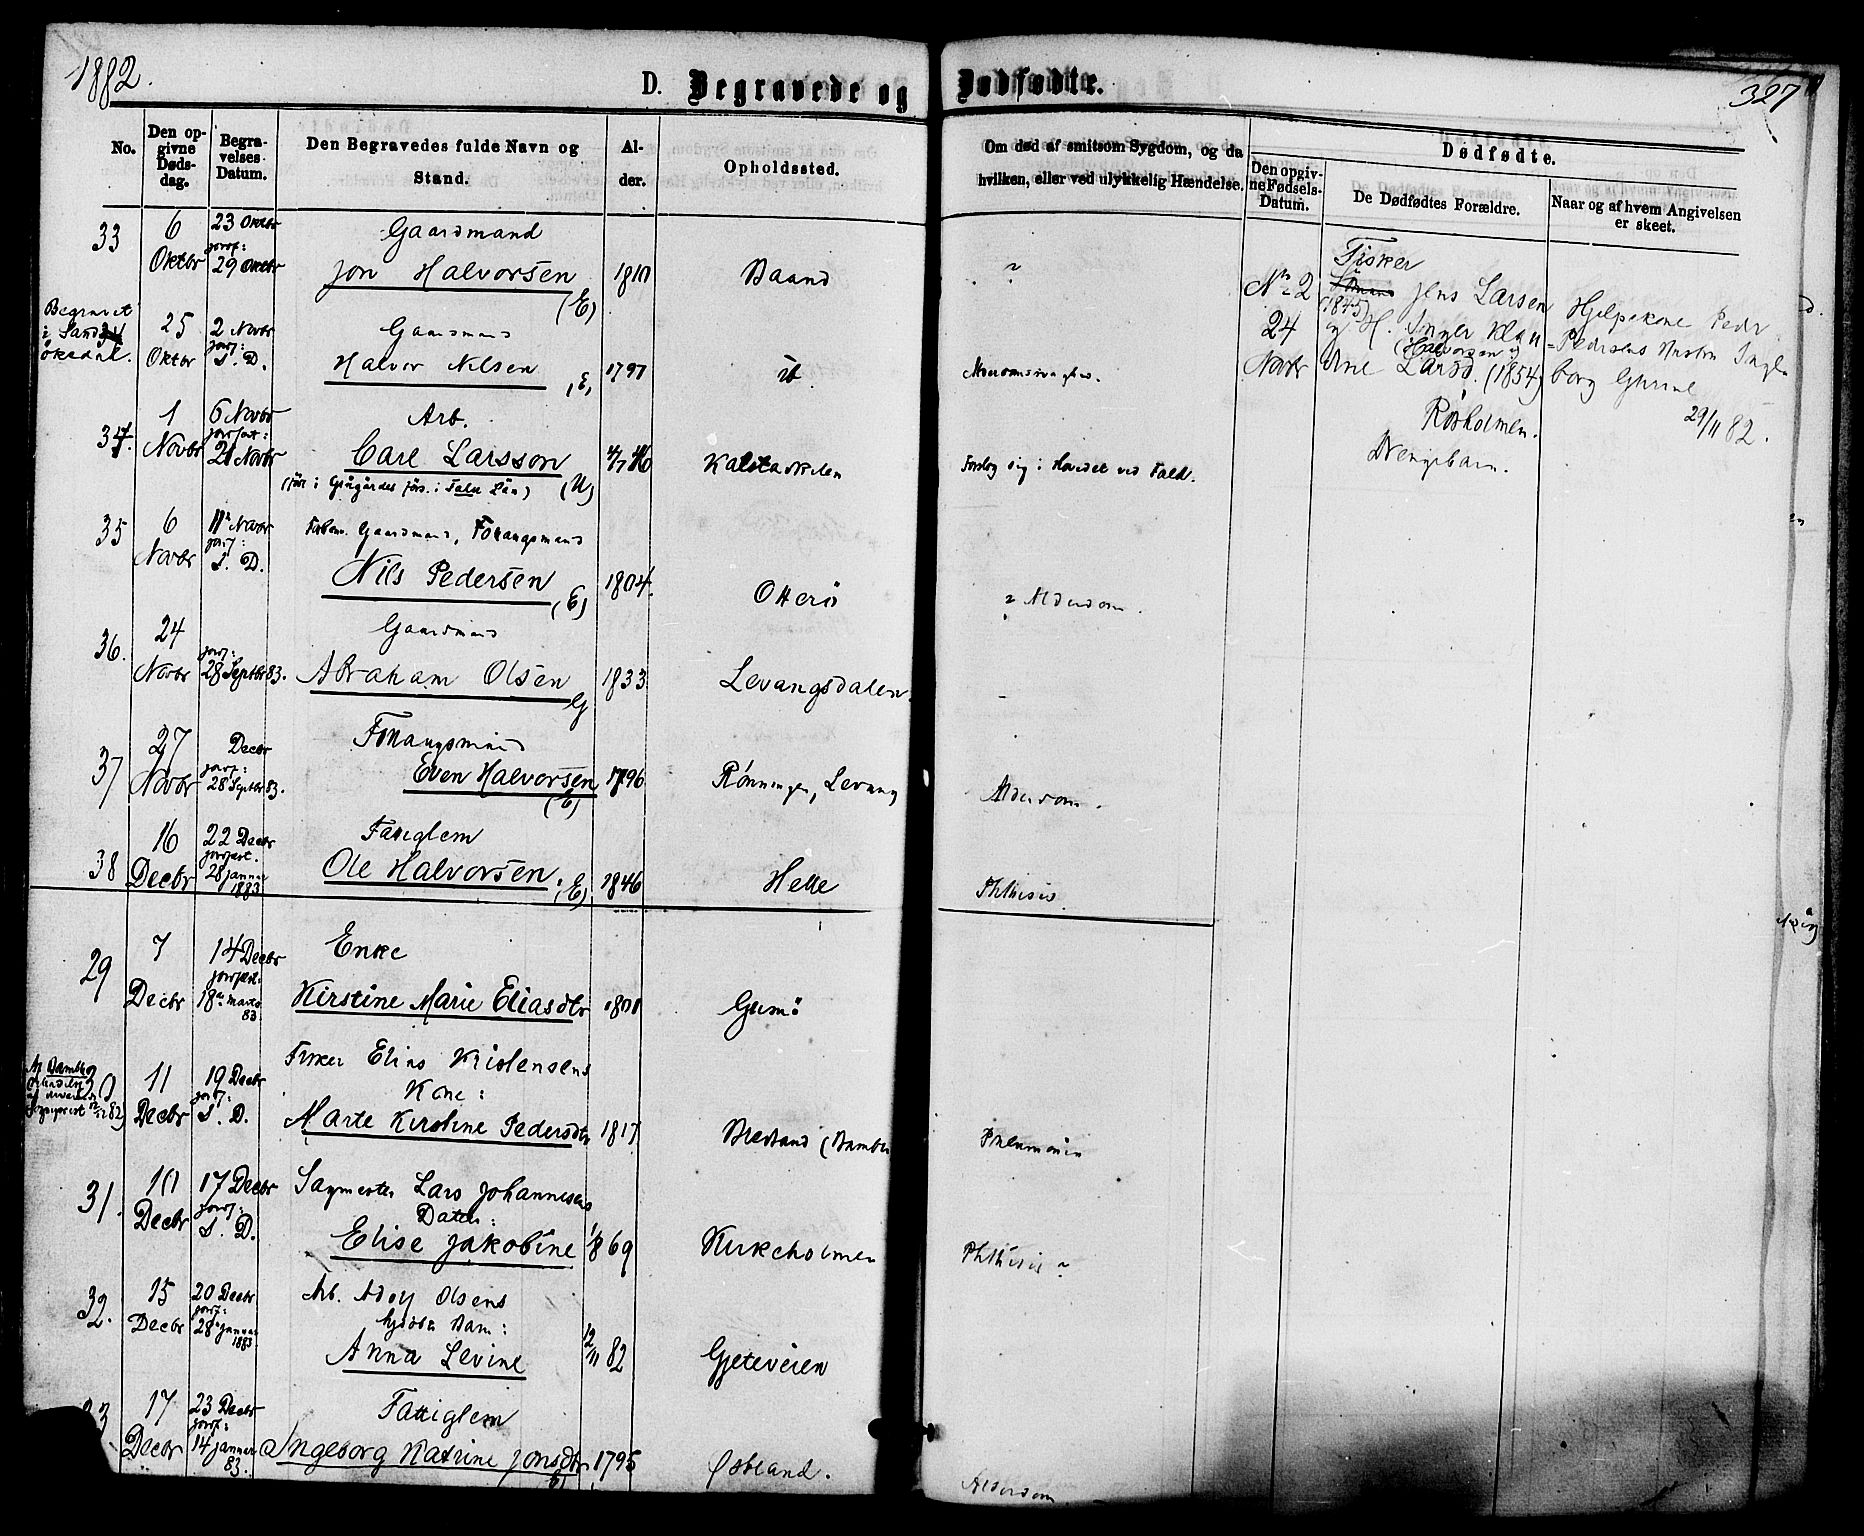 1882.
D. Begravede og Dødfødte.
327
No.
Den opgivne Dødsdag.
Begravelses-Datum.
Den Begravedes fulde Navn og Stand.
Alder.
Opholdssted.
Om død af smitsom Sygdom, og da hvilken, eller ved ulykkelig Hændelse.
Dødfødte.
Den opgivne Fødsels-Datum.
De Dødfødtes Forældre.
Naar og af hvem Angivelsen er skeet.
33
6 Oktbr
23 Oktbr
jordf:
29 Oktbr
Gaardmand
Jon Halvorsen
(E)
1810
Baand
"
Begravet i Sandøkedal.
34
25 Oktbr
2 Novbr
jordf:
S. D.
Gaardmand
Halvor Nilsen
(E)
1797
ib
34.
1 Novbr
6 Novbr
21 Novbr
Arb.
Carl Larsson
(U)
4/7 46
Kalstadkilen
Forslog sig i Hovedet ved Fald.
35
6 Novbr
11 Novbr
jordf:
S. D.
Gaardmand,
Nils Pedersen
(E)
1804.
Otterö
Alderdom.
36.
24 Novbr
jordf:
28 Septbr 83.
Gaardmand
Abraham Olsen
G
1833
Levangsdalen
37
27 Novbr
Decbr
jordf:
28 Septbr 83.
Even Halvorsen
(E)
1796
Rønningen, Levang
Alderdom.
38
16 Decbr
22 Decbr
jordfæst.
28 Januar 1883
Fattiglem
Ole Halvorsen
(E)
1846
Helle
Phthisis.
29
7 Decbr
14 Decbr
jordfæst:
18 marts 83.
Enke
Kirstine Marie Eliasdtr
1801
Gumö
11 Decbr
19 Decbr
jordf:
S. D.
Fisker Elias Kristensens
Kone:
Marte Kirstine Pedersdtr
1817
Pneumonia
31.
10 Decbr
17 Decbr
jordf:
S. D.
Sagmester Lars Johannesens
Datter:
Elise Jakobine
1869
Kirkeholmen
Phthisis
32.
15 Decbr
20 Decbr
jordf:
28 Januar 1883
Arb. Adolf Olsens
Barn:
Anna Levine
12/11 82
Gjeteveien
33
17 Decbr
23 Decbr
jordf:
14 Januar 83.
Fattiglem
Ingeborg Katrine Jonsdtr
1795
Østland.
Alderdom
No 2
24 Novbr
Fisker
Jens Larsen
(1845)
og H. Inger
Halvorsen
Larsd. (1854)
Røsholmen.
Drengebarn.
Hjelpekone Peder
Pedersens Hustru Ingeborg Gurine
29/11 82.